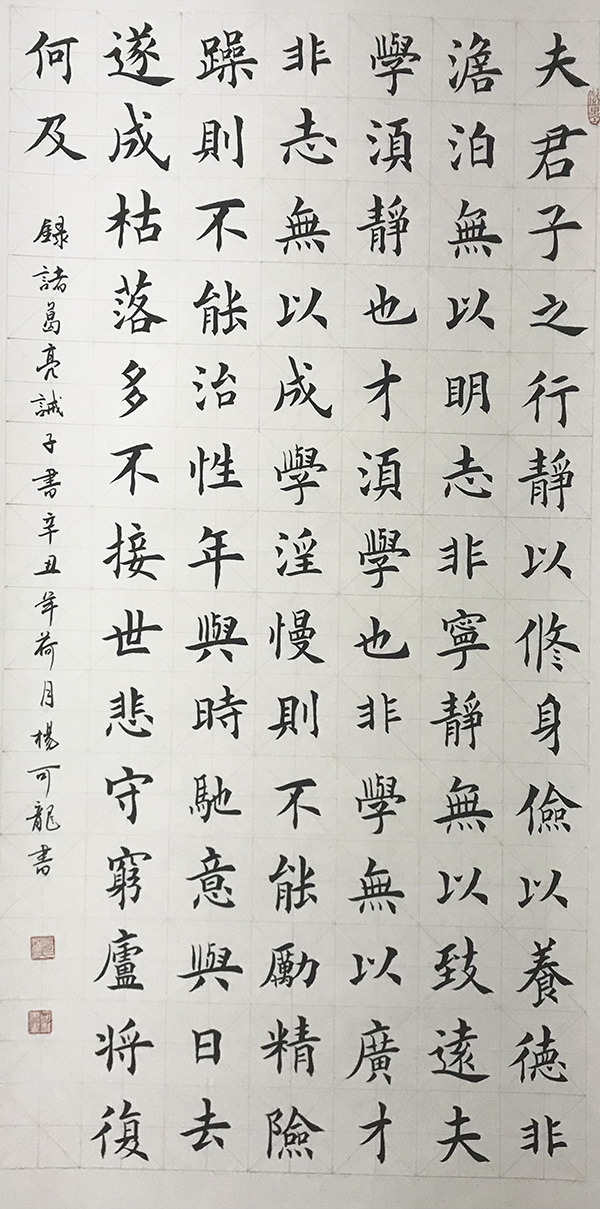 夫君子之行靜以修身儉以養德非
澹泊無以明志非寧靜無以致遠夫
學須靜也才須學也非學無以廣才
非志無以成學淫慢則不能勵精險
躁則不能治性年與時馳意與日去
遂成枯落多不接世悲守窮廬將復
何及
錄諸葛亮誡子書辛丑年荷月楊可龍書